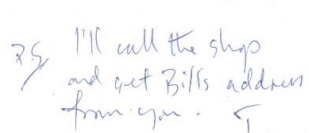 PS I'll call the shop
and get Bill's address
from you. T